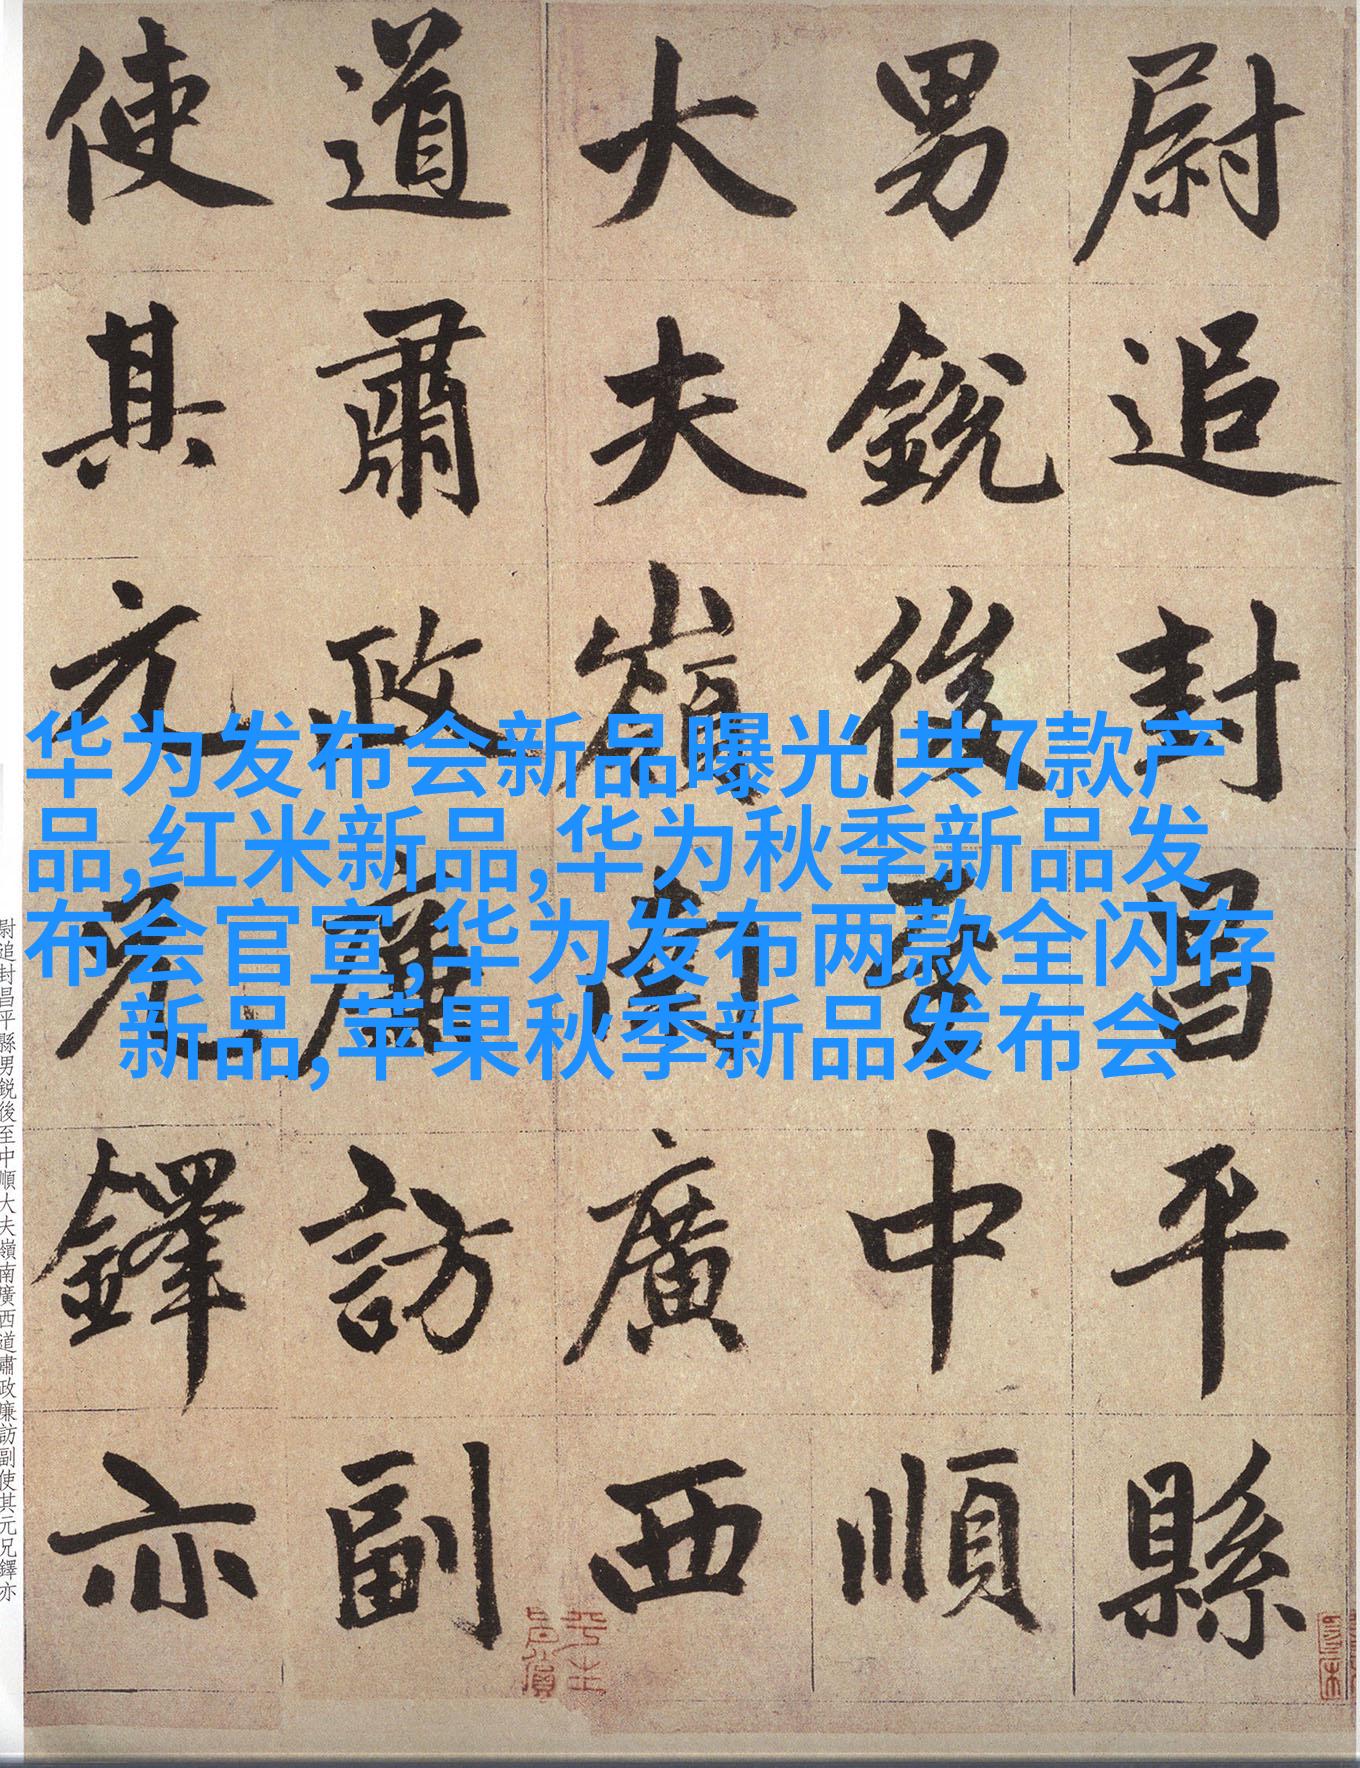 尉追封昌平縣
男銳後至中順
大夫嶺南廣西
道肅政廉訪副
使其元兄鐸亦
华为发布会新品曝光 共7款产
品,红米新品,华为秋季新品发
布会官宣,华为发布两款全闪存
新品,苹果秋季新品发布会
尉追封昌平縣男鋭後至中順大夫嶺南廣西道肅政廉訪副使其元兄鐸亦